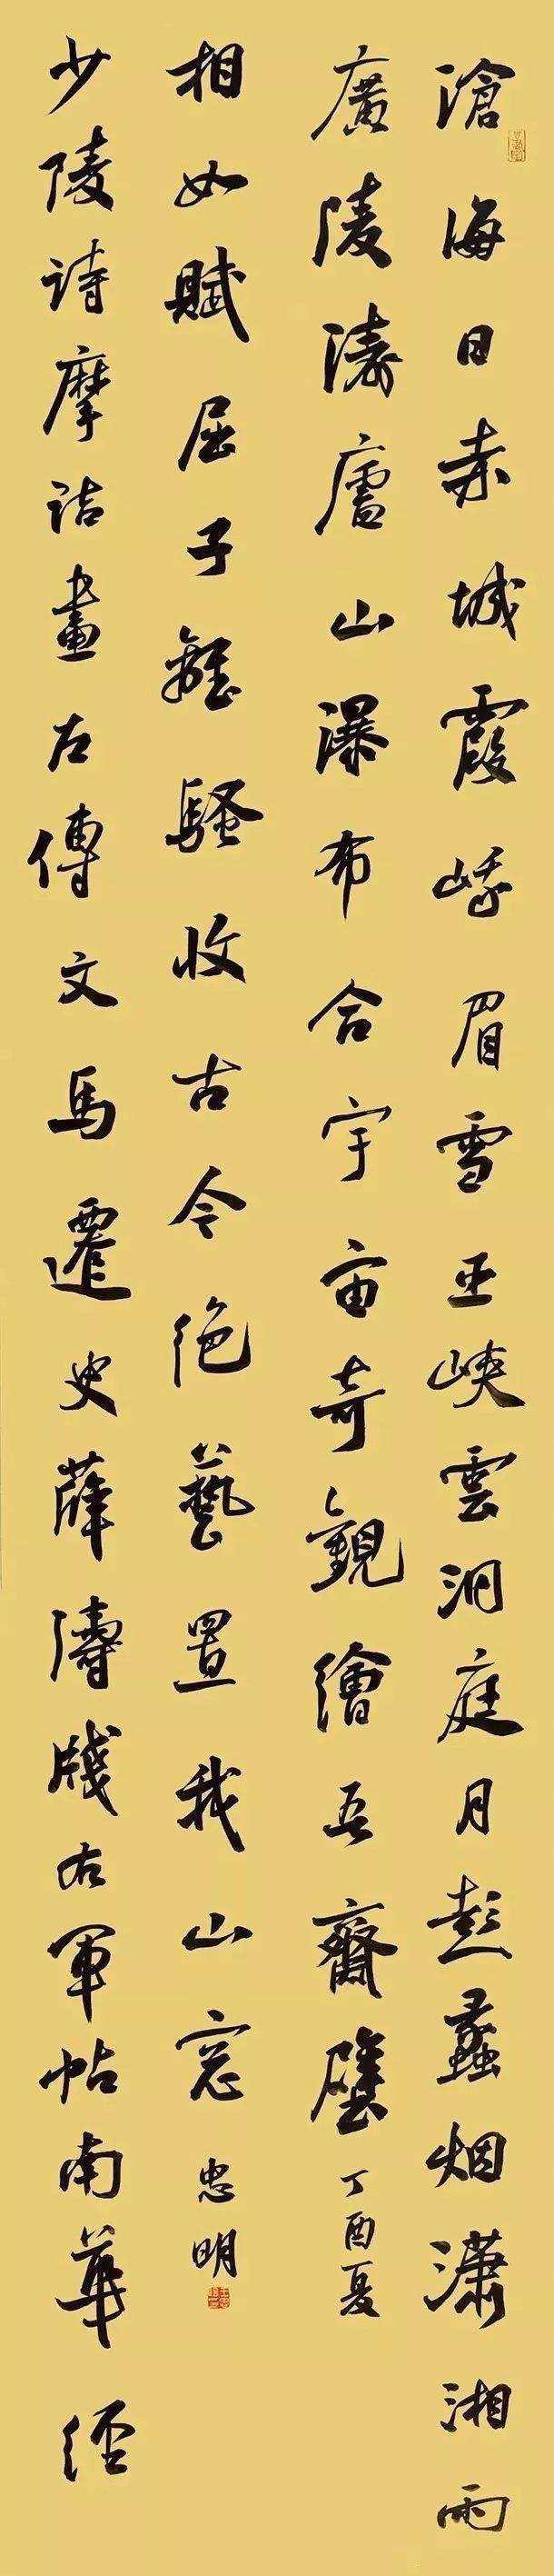 滄海日赤城霞峨眉雪巫峽雲洞庭月彭蠡烟瀟湘雨
廣陵濤廬山瀑布合宇宙奇觀繪吾齋壁
丁酉夏
少陵詩摩詰畫左傳文馬遷史薛濤牋右軍帖南華經
相如賦屈子離騷收古今絶藝置我山窓
忠明